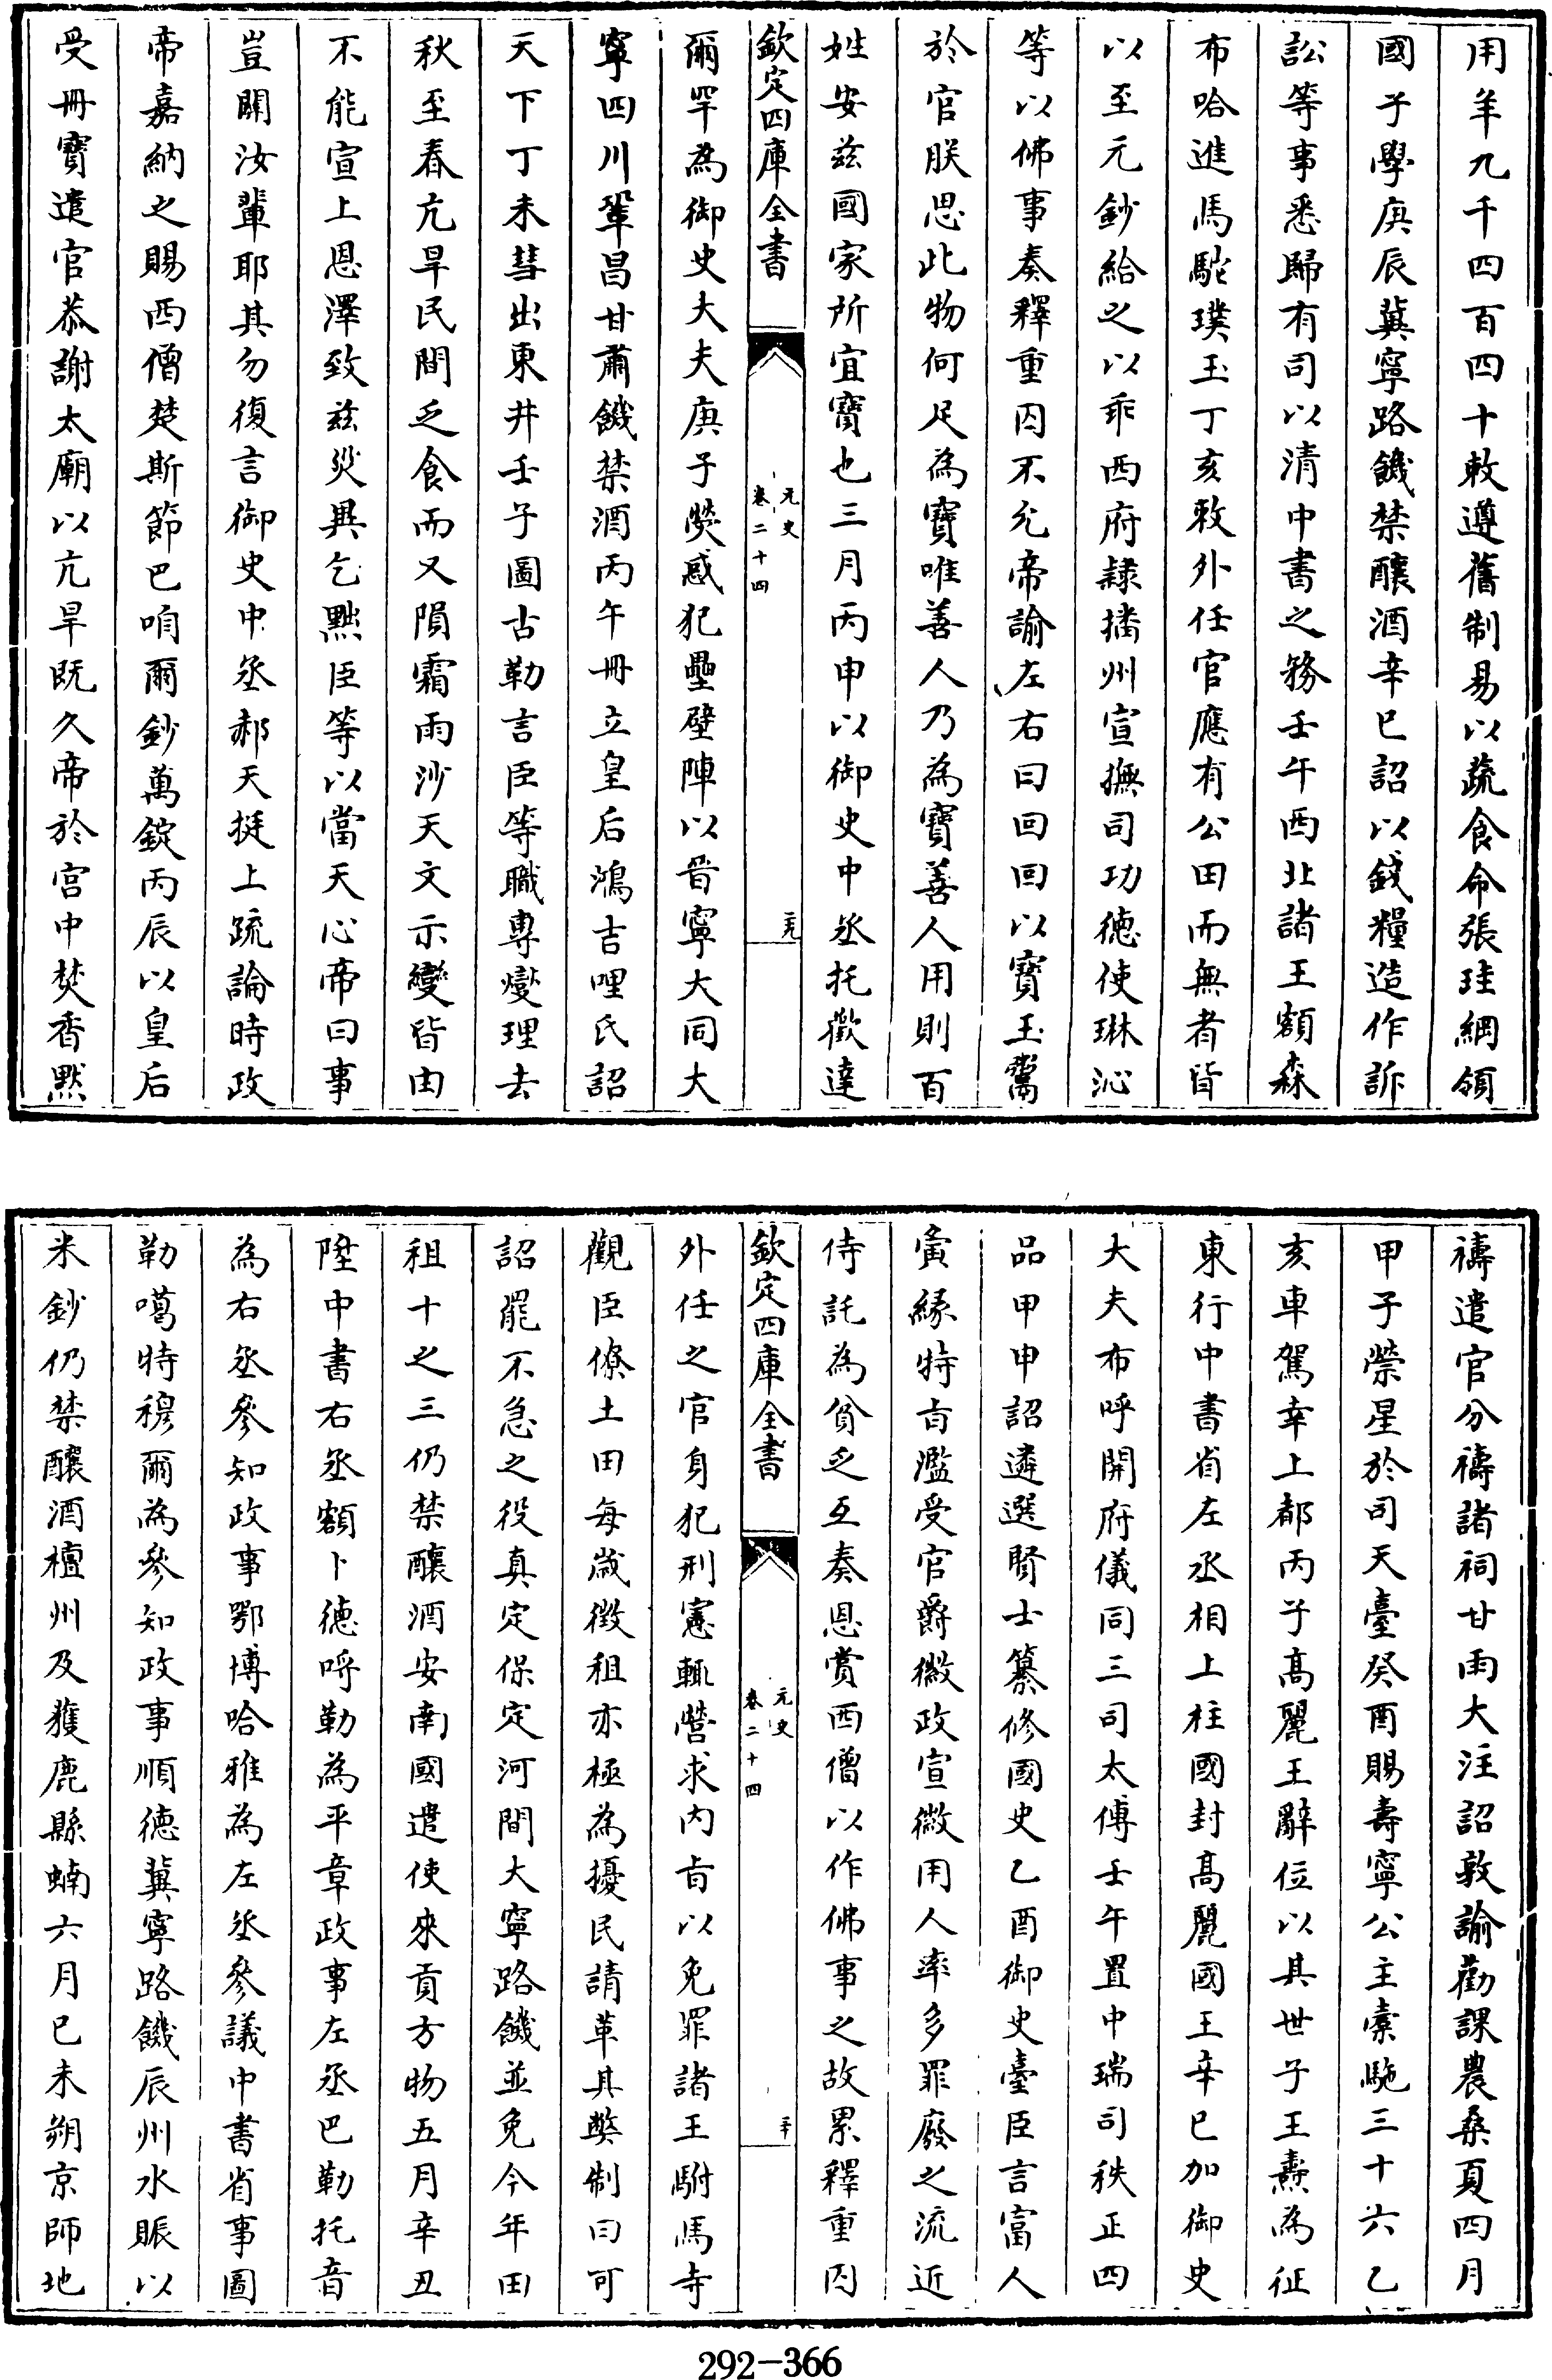 用羊九千四百四十敕遵舊制易以蔬食命張珪綱領
國子學庚辰冀寧路饑禁釀酒辛巳詔以錢糧造作訴
訟等事悉歸有司以清中書之務壬午西北諸王額森
布哈進馬駝璞玉丁亥敕外任官應有公田而無者皆
以至元鈔給之以乖西府隷播州宣撫司功德使琳沁
等以佛事奏釋重囚不允帝諭左右曰回回以寶玉鬻
於官朕思此物何足為寶唯善人乃為寶善人用則百
姓安兹國家所宜寶也三月丙申以御史中丞托歡達
欽定四庫全書
元史
卷二十四
二九
爾罕為御史大夫庚子熒惑犯壘壁陣以晉寧大同大
寧四川鞏昌甘肅饑禁酒丙午冊立皇后鴻吉哩氏詔
天下丁未彗出東井壬子圖古勒言臣等職專燮理去
秋至春亢旱民間乏食而又隕霜雨沙天文示變皆由
不能宣上恩澤致兹災異乞黜臣等以當天心帝曰事
豈關汝輩耶其勿復言御史中丞郝天挺上疏論時政
帝嘉納之賜西僧楚斯節巴咱爾鈔萬錠丙辰以皇后
受冊寶遣官恭謝太廟以亢旱既久帝於宫中焚香黙
禱遣官分禱諸祠甘雨大注詔敦諭勸課農桑夏四月
甲子禜星於司天臺癸酉賜壽寧公主橐駞三十六乙
亥車駕幸上都丙子髙麗王辭位以其世子王燾為征
東行中書省左丞相上柱國封髙麗國王辛巳加御史
大夫布呼開府儀同三司太傅壬午置中瑞司秩正四
品甲申詔遴選賢士纂修國史乙酉御史臺臣言富人
寅縁特旨濫受官爵徽政宣徽用人率多罪廢之流近
侍託為貧乏互奏恩賞西僧以作佛事之故累釋重囚
欽定四庫全書
元史
卷二十四
三十
外任之官身犯刑憲輒營求内旨以免罪諸王駙馬寺
觀臣僚土田每歲徴租亦極為擾民請革其弊制曰可
詔罷不急之役真定保定河間大寧路饑並免今年田
租十之三仍禁釀酒安南國遣使來貢方物五月辛丑
陞中書右丞額卜德呼勒為平章政事左丞巴勒托音
為右丞參知政事鄂博哈雅為左丞參議中書省事圖
勒噶特穆爾為參知政事順德冀寧路饑辰州水賑以
米鈔仍禁釀酒檀州及獲鹿縣蝻六月己未朔京師地
292-366